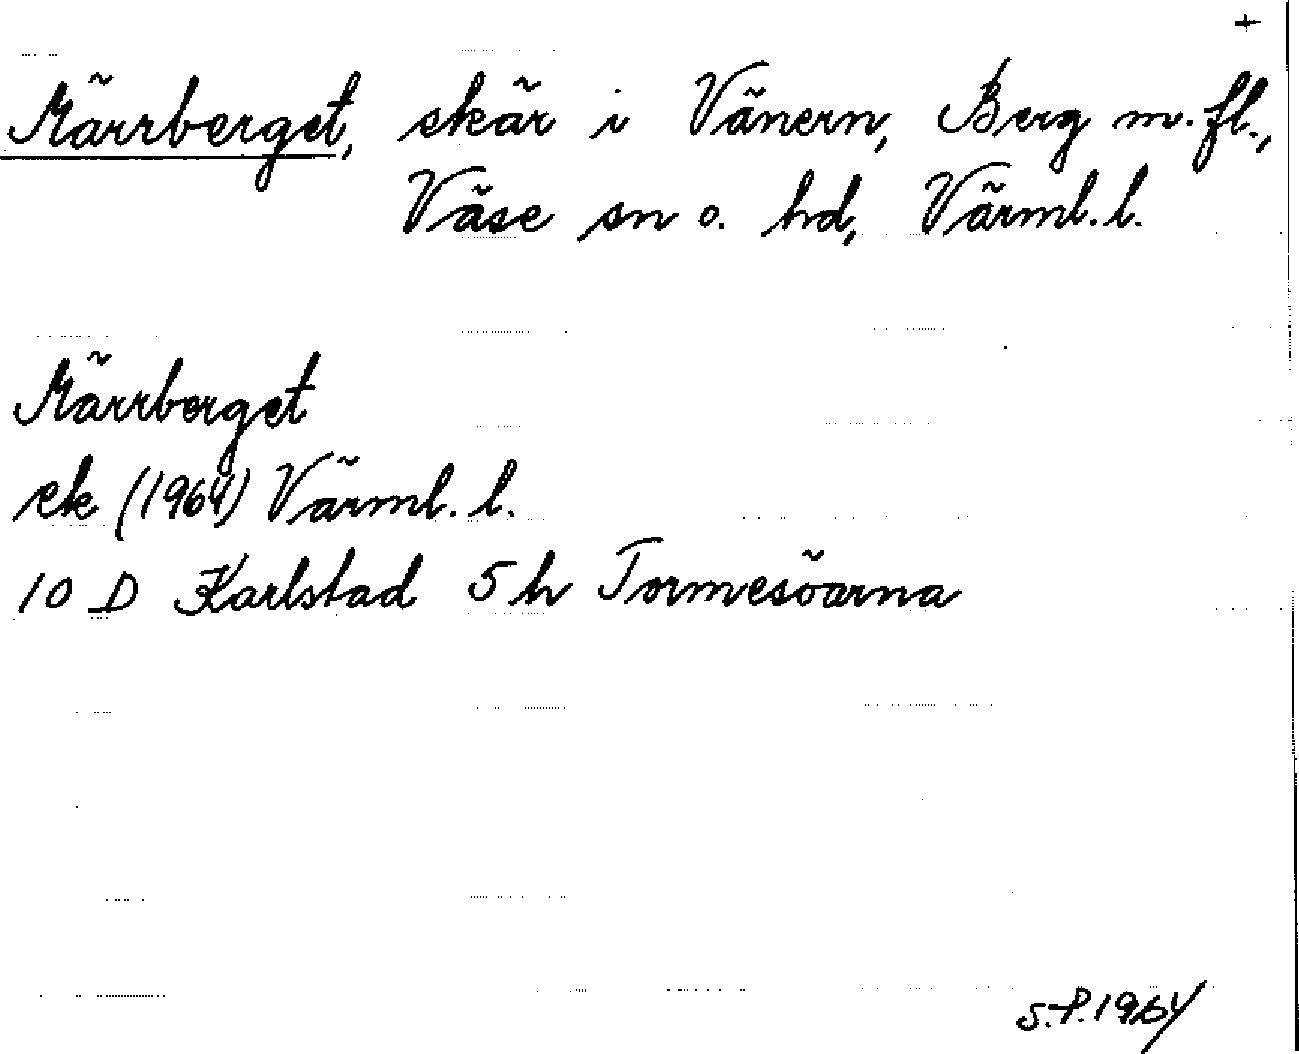 +
Märrberget, skär i Vänern, Berg m. fl.,
Väse sn o. hd, Värml. l.
Märrberget
ek (1964) Värml. l.
10 D Karlstad 5 h Tormesöarna
S.P. 1964